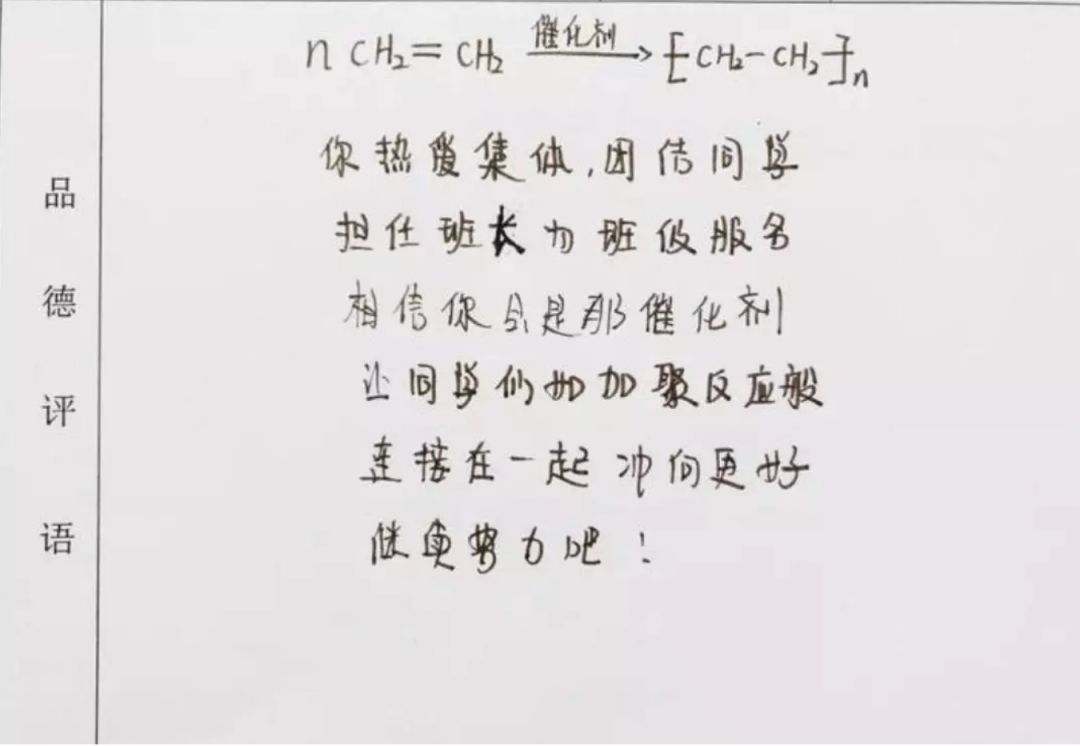 品德评语
催化剂
n CH₂=CH₂ ⟶ [CH₂-CH₂]n
你热爱集体,团结同学
担任班长为班级服务
相信你会是那催化剂
让同学们如加聚反应般
连接在一起冲向更好
继续努力吧!